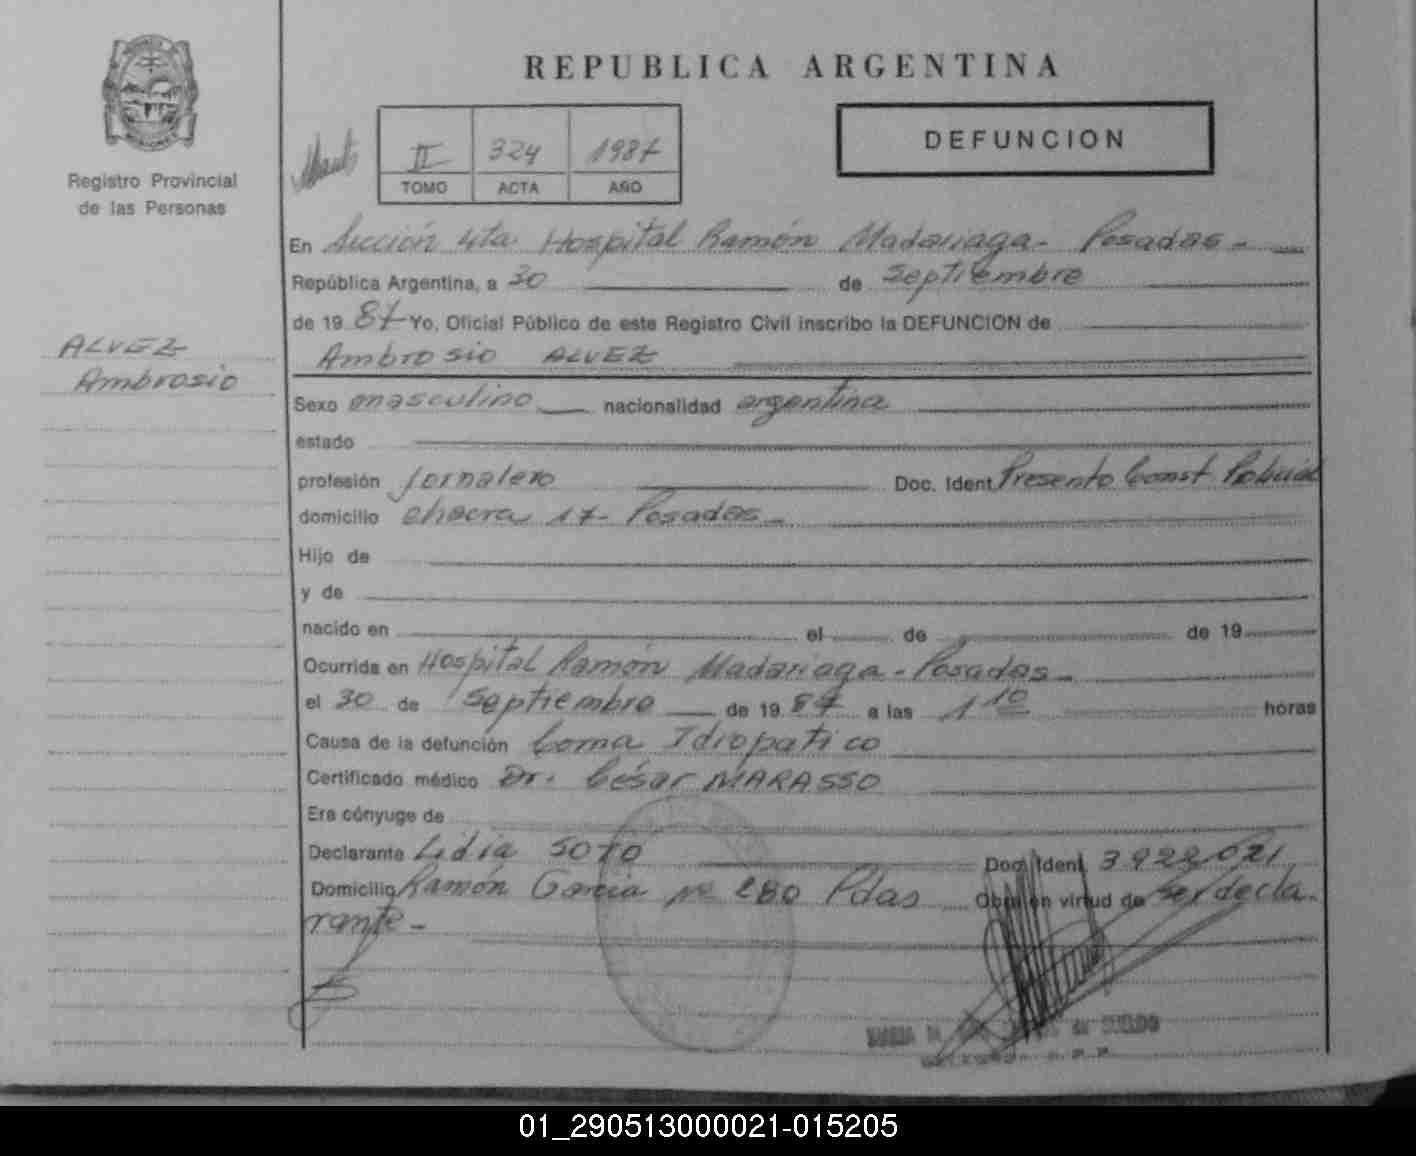 REPUBLICA ARGENTINA
DEFUNCION
II 324 1987
TOMO ACTA AÑO
Registro Provincial
de las Personas
ALVEZ
Ambrosio
En Sección 4ta Hospital Ramón Madariaga - Posadas -
República Argentina, a 30 de Septiembre
de 19 87 Yo, Oficial Público de este Registro Civil inscribo la DEFUNCION de
Ambrosio ALVEZ
Sexo masculino nacionalidad argentina
estado
profesión Jornalero Doc. Ident. Presento Const. Policial
domicilio chacra 17 - Posadas -
Hijo de
y de
nacido en el de de 19
Ocurrida en Hospital Ramón Madariaga - Posadas -
el 30 de Septiembre de 19 87 a las 1 10 horas
Causa de la defunción Coma Idiopatico
Certificado médico Dr. César MARASSO
Era cónyuge de
Declarante Lidia SOTO Doc. Ident. 3922021
Domicilio Ramón Garcia nº 280 Pdas Obra en virtud de ser decla-
rante -
01_290513000021-015205